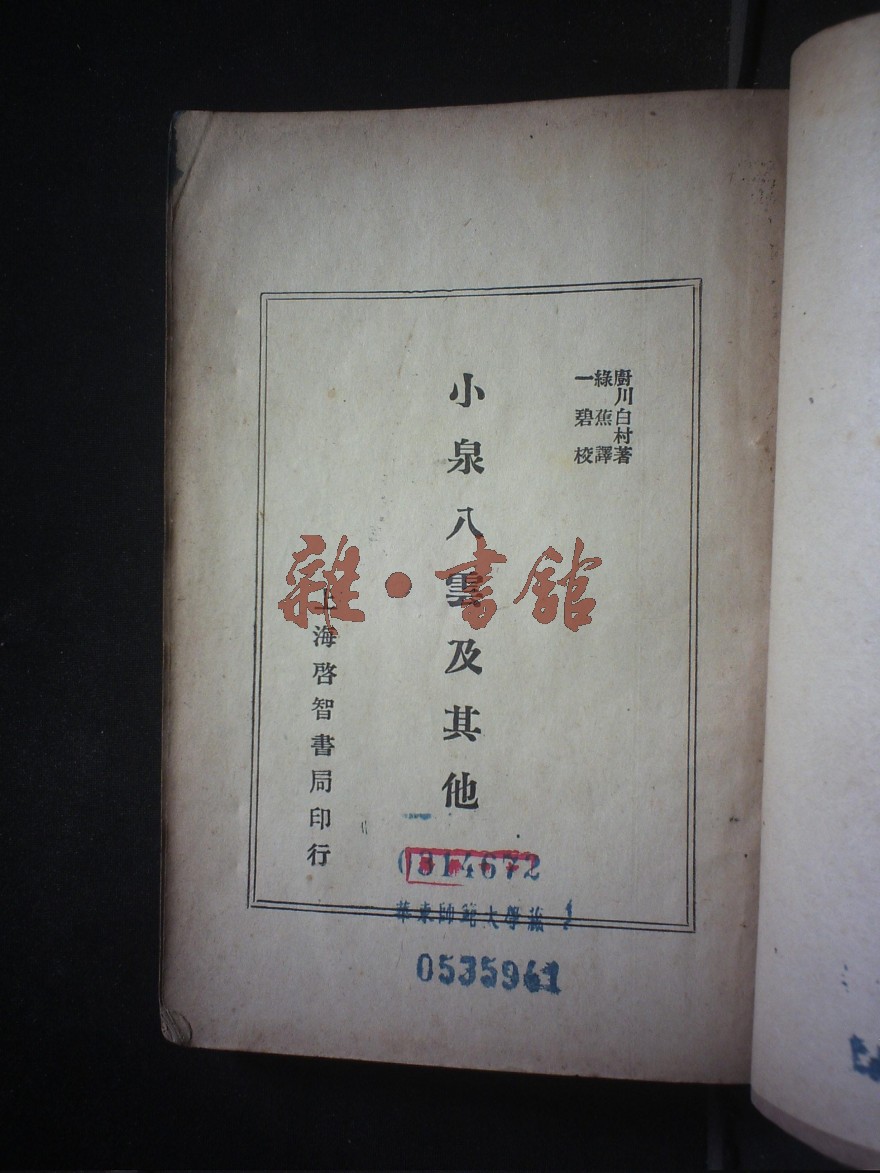 廚川白村著
綠蕉譯
一碧校
小泉八雲及其他
上海啓智書局印行
雜·書館
0314672
華東師範大學藏
0535961